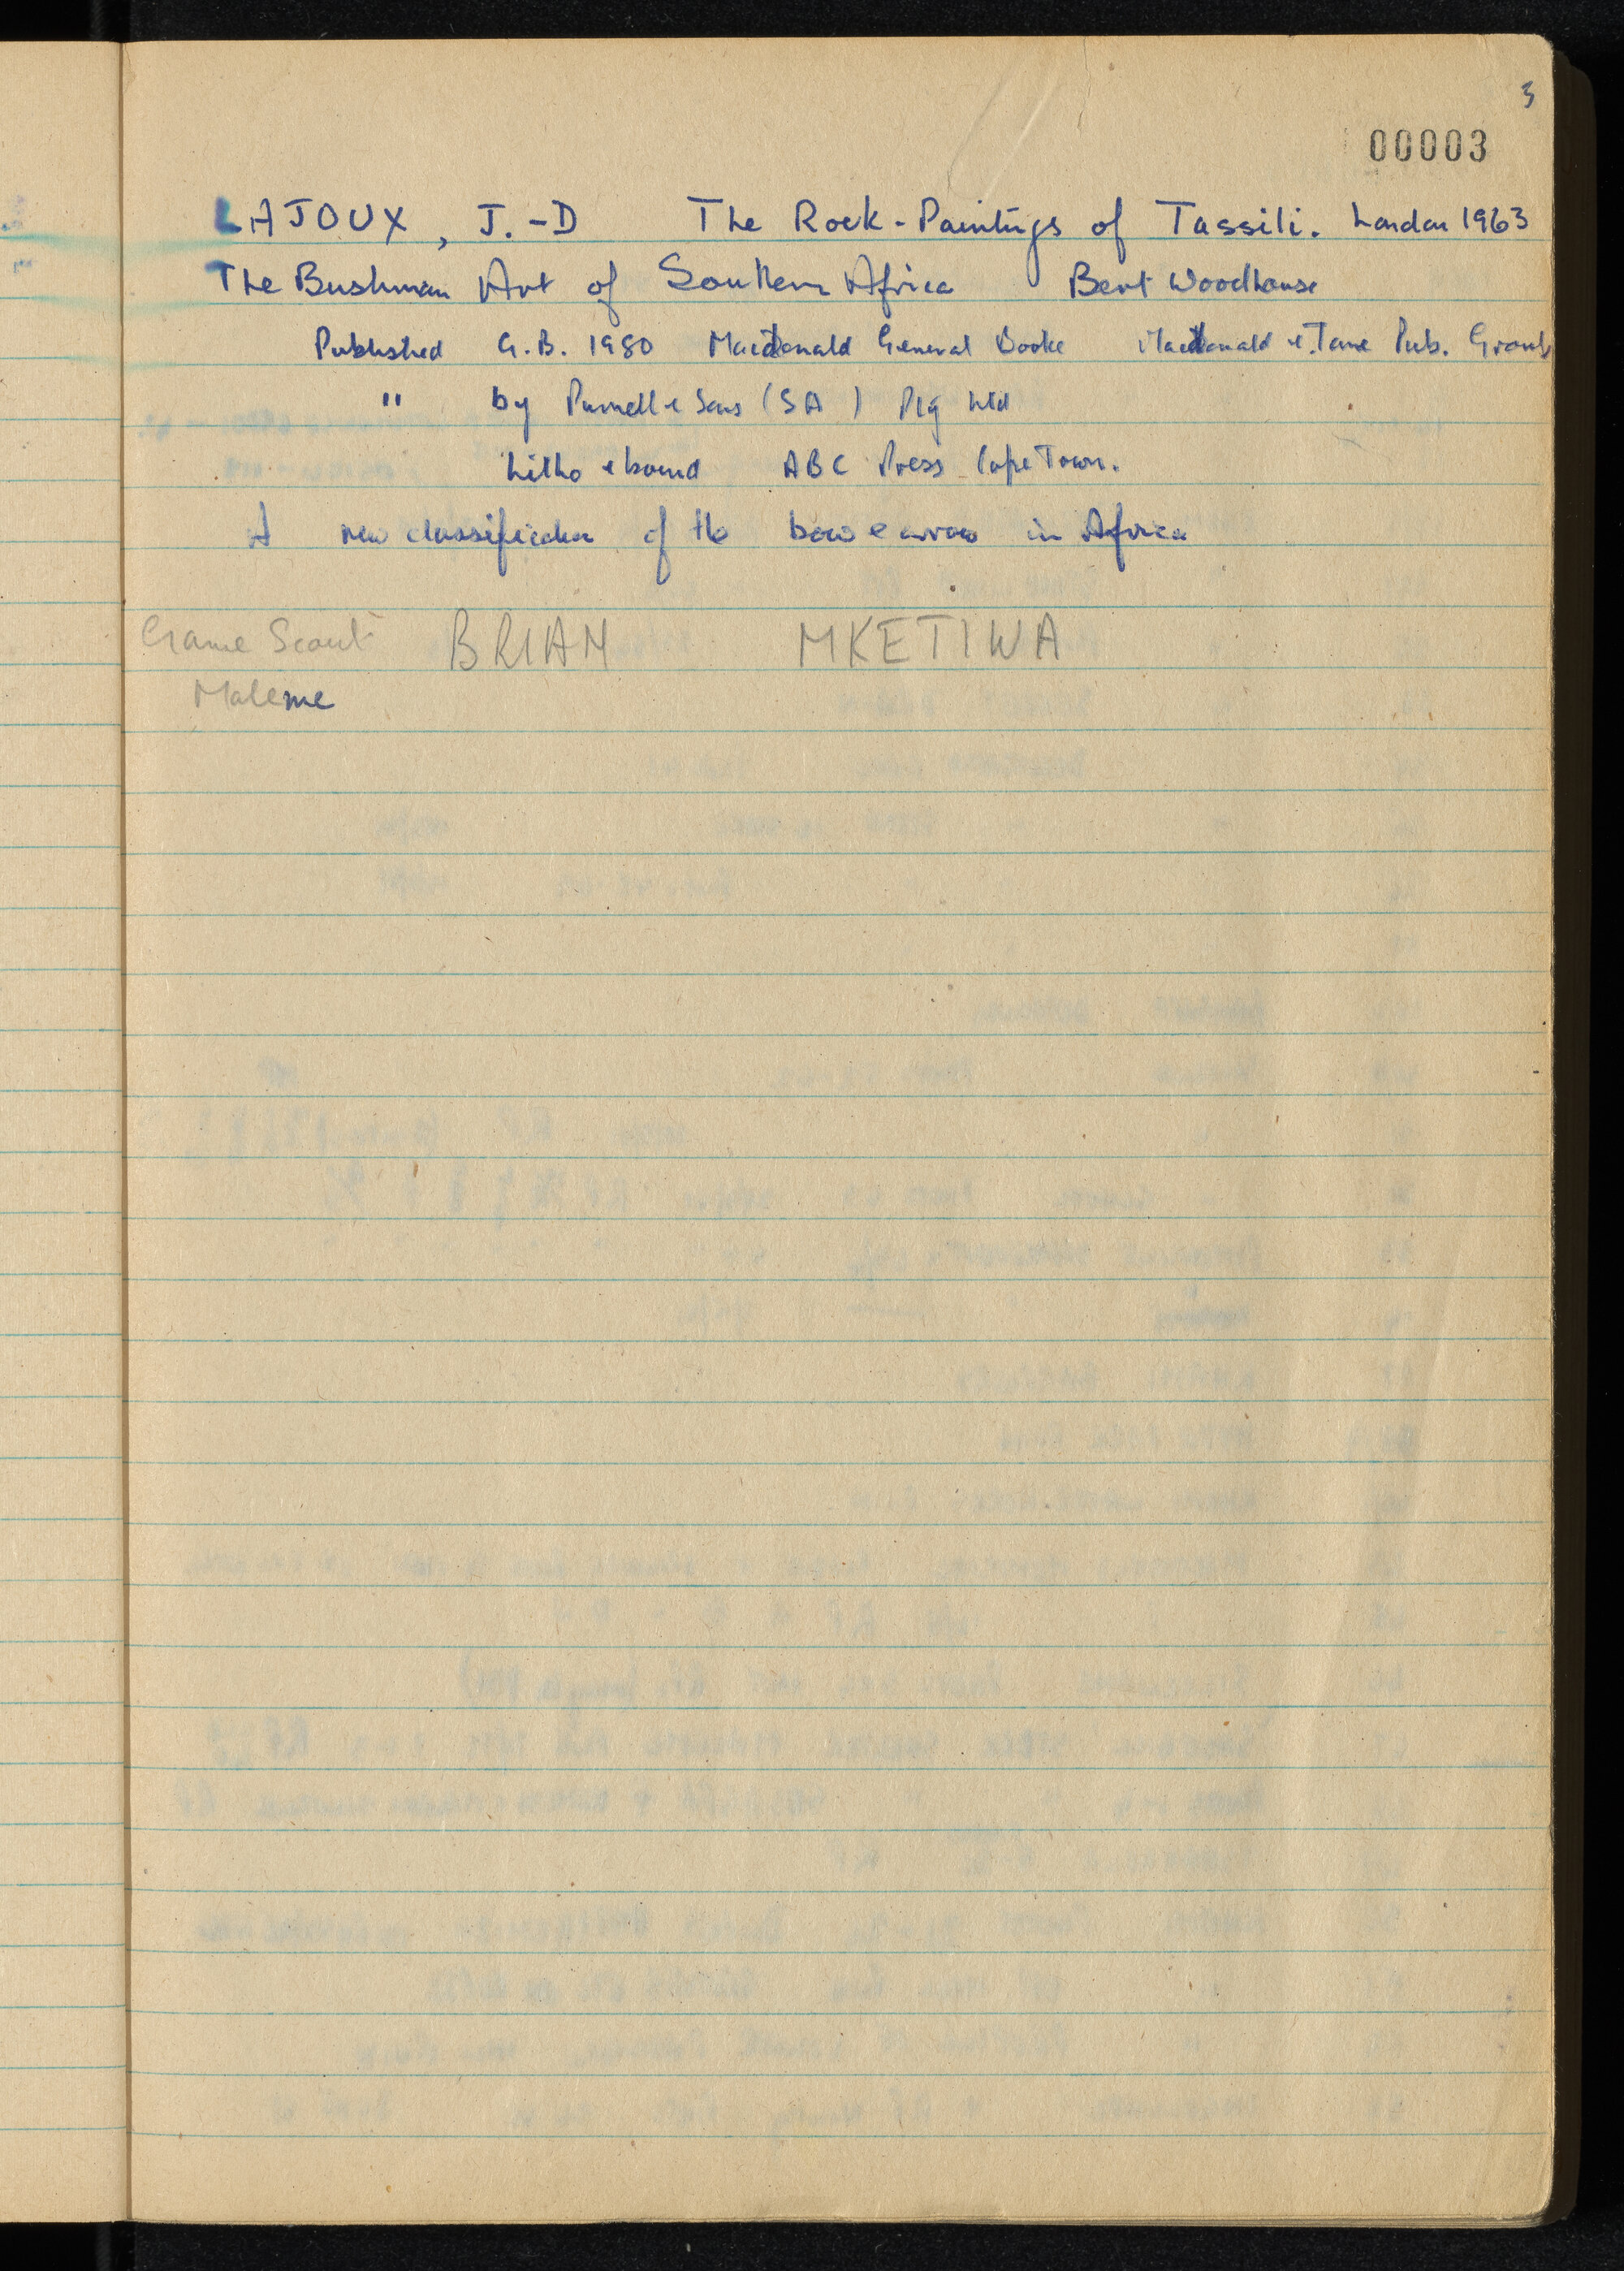 3
00003
LAJOUX, J.-D The Rock-Paintings of Tassili. London 1963
The Bushman Art of Southern Africa Bert Woodhouse
Published G.B. 1980 Macdonald General Books Macdonald & Jane Pub. Group
" by Purnell & Sons (SA) Pty Ltd
Litho & bound ABC Press Cape Town.
A new classification of the bow & arrow in Africa
Game Scout BRIAN MKETIWA
Maleme